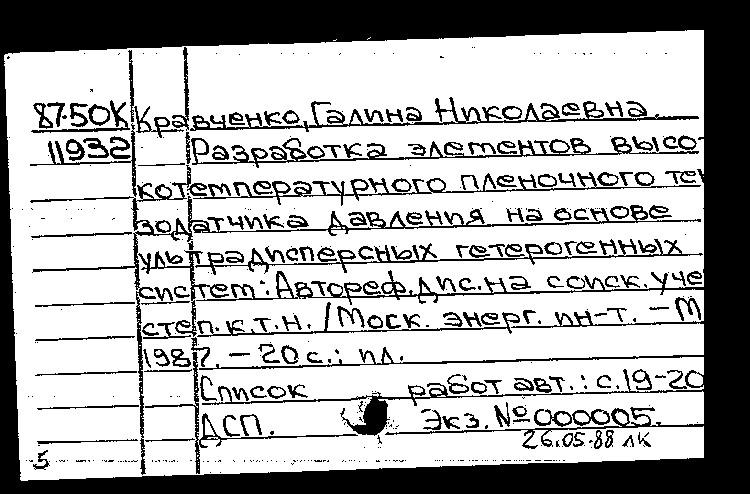 87-50К Кравченко, Галина Николаевна.
11932 Разработка элементов высо-
котемпературного пленочного тен
зодатчика давления на основе
ультрадисперсных гетерогенных
систем: Автореф. дис. на соиск. уче
степ. к.т.н. / Моск. энерг. ин-т. – М
1987. – 20 с.: ил.
Список работ авт.: с. 19-20
ДСП. Экз. № 000005.
26.05.88 лк
5